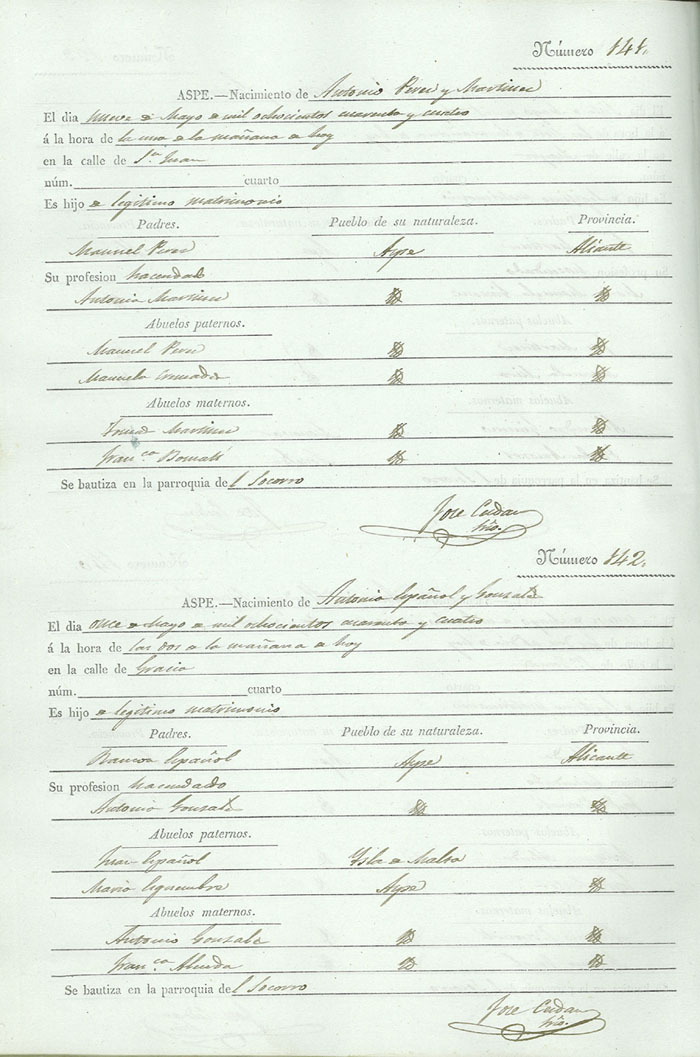 Número 141.
ASPE.—Nacimiento de Antonio Perez y Martinez
El dia nueve de Mayo de mil ochocientos cuarenta y cuatro
á la hora de la una de la mañana de hoy
en la calle de Sn. Juan
núm. cuarto
Es hijo de legitimo matrimonio
Padres. Pueblo de su naturaleza. Provincia.
Manuel Perez Aspe Alicante
Su profesion hacendado
Antonia Martinez Id Id
Abuelos paternos.
Manuel Perez Id Id
Manuela Cremades Id Id
Abuelos maternos.
Martinez Id Id
Franca. Id Id
Se bautiza en la parroquia del Socorro
Jose
Srio.
Número 142.
ASPE.—Nacimiento de Antonio Español y Gonzalez
El dia once de Mayo de mil ochocientos cuarenta y cuatro
á la hora de las dos de la mañana de hoy
en la calle de Gracia
núm. cuarto
Es hijo de legitimo matrimonio
Padres. Pueblo de su naturaleza. Provincia.
Ramon Español Aspe Alicante
Su profesion hacendado
Antonia Gonzalez Id Id
Abuelos paternos.
Juan Español Isla de Malta
Maria Aspe Id
Abuelos maternos.
Antonio Gonzalez Id Id
Franca. Almeda Id Id
Se bautiza en la parroquia del Socorro
Jose
Srio.